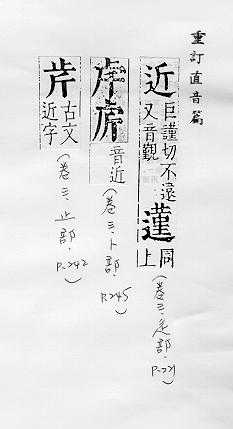 重訂直音篇
近 巨謹切不遠
又音覲 䔖 同
上
(卷三·辵部·P.221)
音近
(卷三·卜部·P.245)
芹 古文
近字
(卷三·止部·P.242)